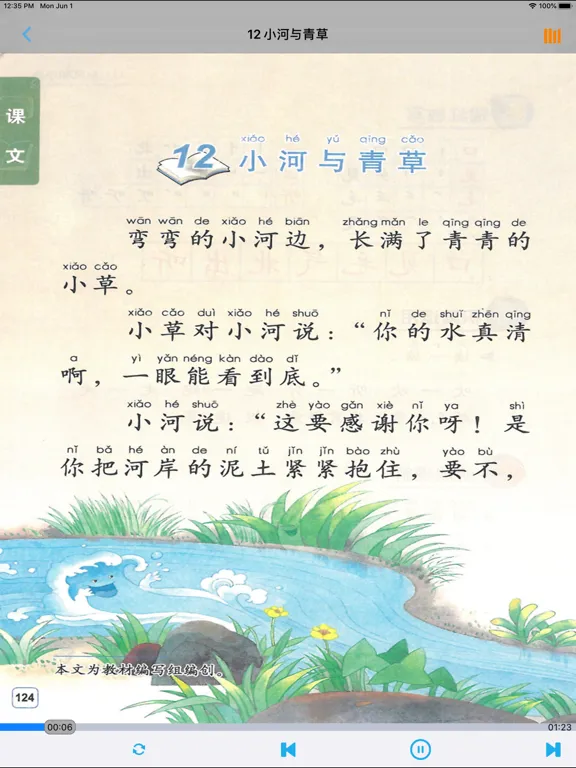 12:35 PM Mon Jun 1 100%
12 小河与青草
课文
xiǎo hé yǔ qīng cǎo
12 小河与青草
wān wān de xiǎo hé biān zhǎng mǎn le qīng qīng de
弯弯的小河边，长满了青青的
xiǎo cǎo
小草。
xiǎo cǎo duì xiǎo hé shuō nǐ de shuǐ zhēn qīng
小草对小河说：“你的水真清
a yì yǎn néng kàn dào dǐ
啊，一眼能看到底。”
xiǎo hé shuō zhè yào gǎn xiè nǐ ya shì
小河说：“这要感谢你呀！是
nǐ bǎ hé àn de ní tǔ jǐn jǐn bào zhù yào bù
你把河岸的泥土紧紧抱住，要不，
本文为教材编写组编创。
124
00:06 01:23